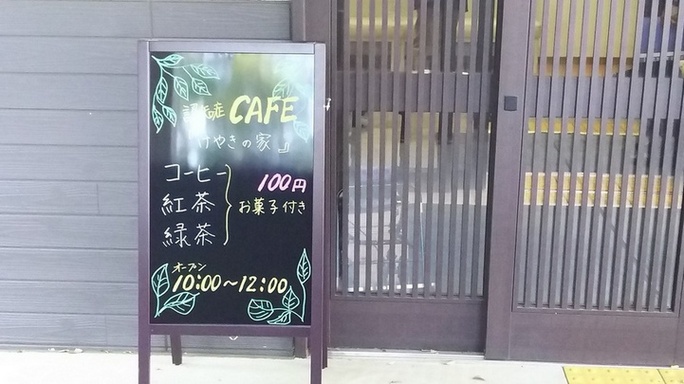 認知症 CAFE
『けやきの家』
コーヒー
紅茶
緑茶
100円
お菓子付き
オープン
10:00～12:00